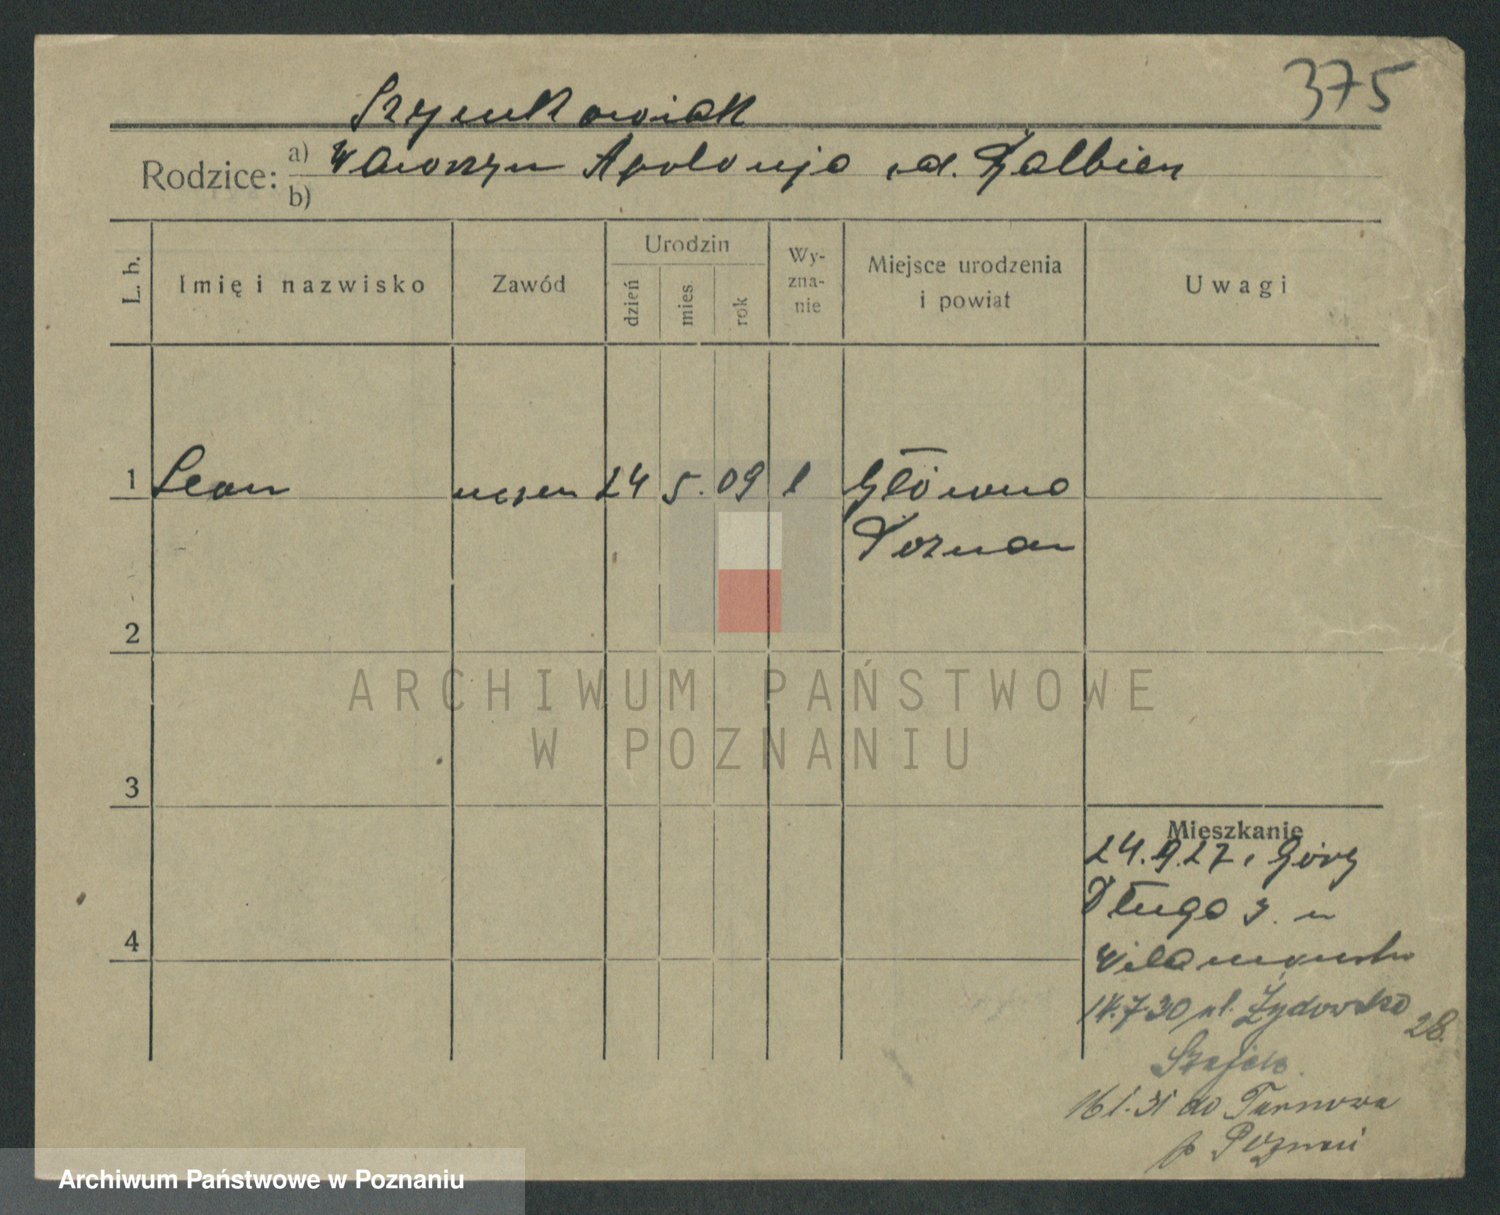 375
Szymkowiak
Rodzice: a) Wawrzyn Apolonja
b)
L. b.
Imię i nazwisko
Zawód
Urodzin
dzień
mies
rok
Wy-
zna-
nie
Miejsce urodzenia
i powiat
Uwagi
1 Leon uczen 24 5. 09 Główno
Poznan
2
3
4
Mieszkanie
24.9.27
Długa 3. u
14.7.30 ul. Żydowska 28.
16.1.31 do Tarnowa
p Poznań
ARCHIWUM PAŃSTWOWE
W POZNANIU
Archiwum Państwowe w Poznaniu